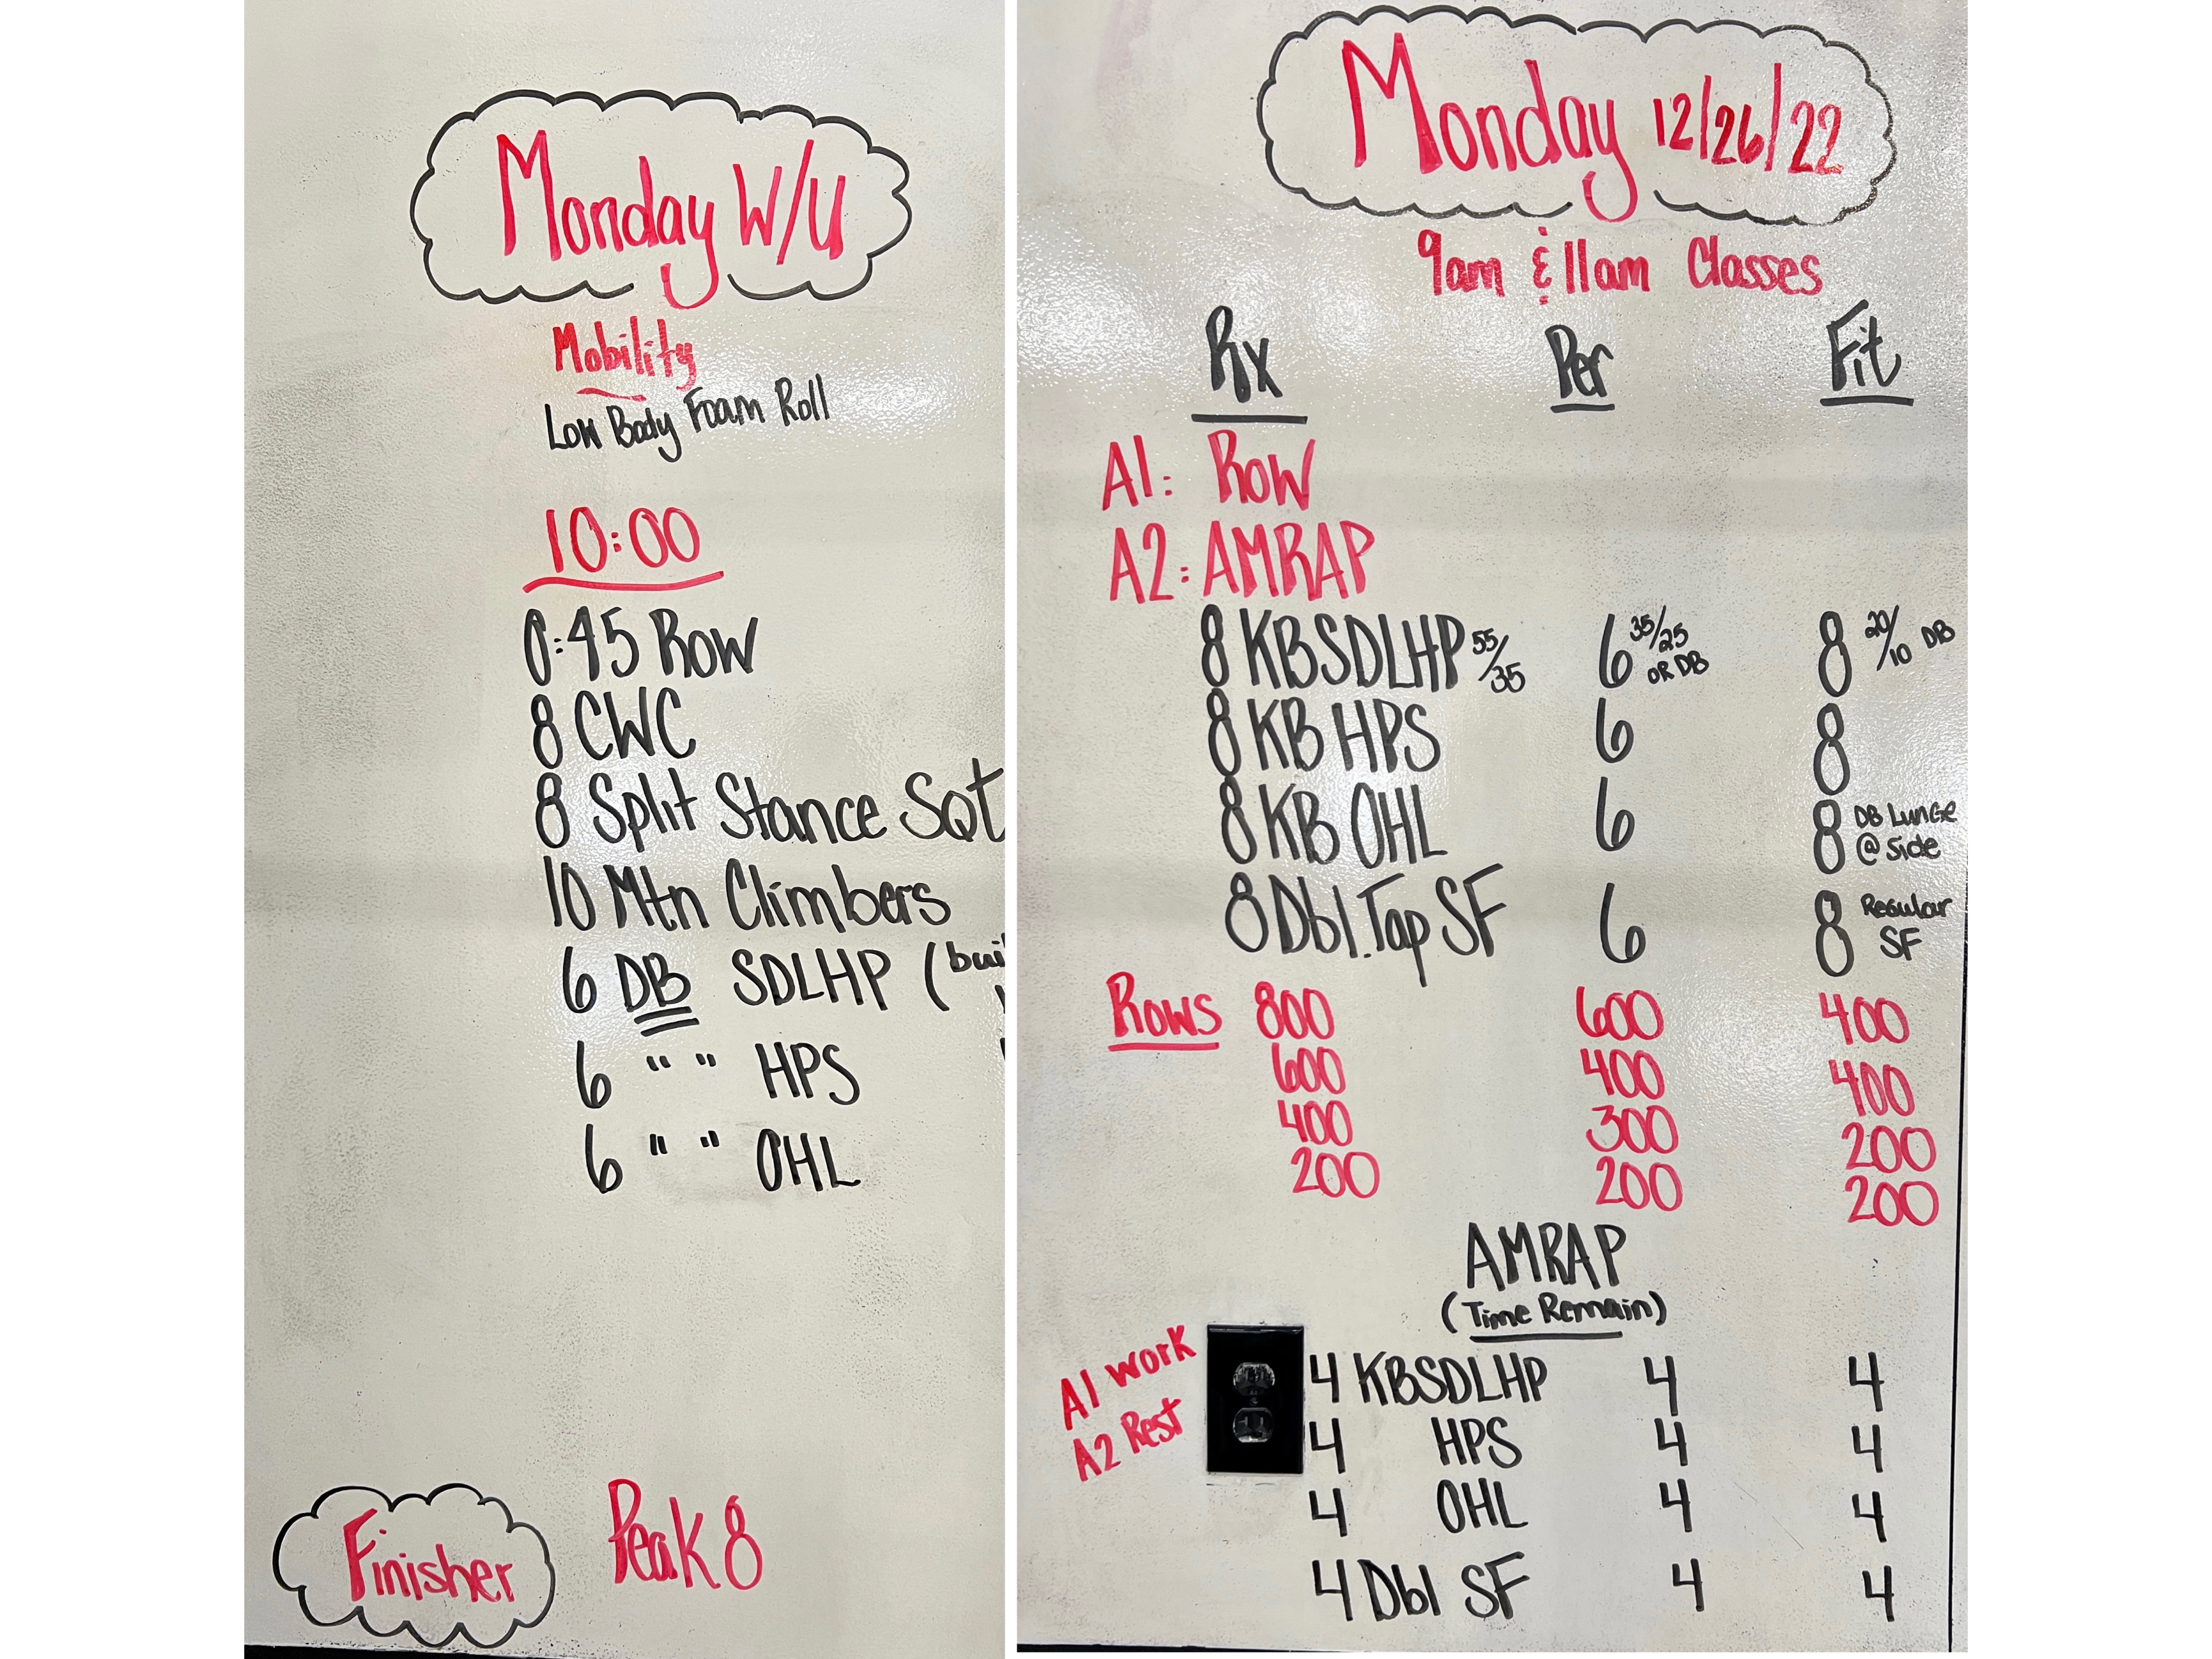 Monday W/U
Mobility
Low Body Foam Roll
10:00
0:45 Row
8 CWC
8 Split Stance Sqt
10 Mtn Climbers
6 DB SDLHP (bui
6 " " HPS
6 " " OHL
Finisher Peak 8
Monday 12/26/22
9am & 11am Classes
Rx Per Fit
A1: Row
A2: AMRAP
8 KBSDLHP 55/35 6 35/25 OR DB 8 20/10 DB
8 KB HPS 6 8
8 KB OHL 6 8 DB Lunge @ Side
8 Dbl.Tap SF 6 8 Regular SF
Rows 800 600 400
600 400 400
400 300 200
200 200 200
AMRAP
(Time Remain)
A1 work
A2 Rest
4 KBSDLHP 4 4
4 HPS 4 4
4 OHL 4 4
4 Dbl SF 4 4